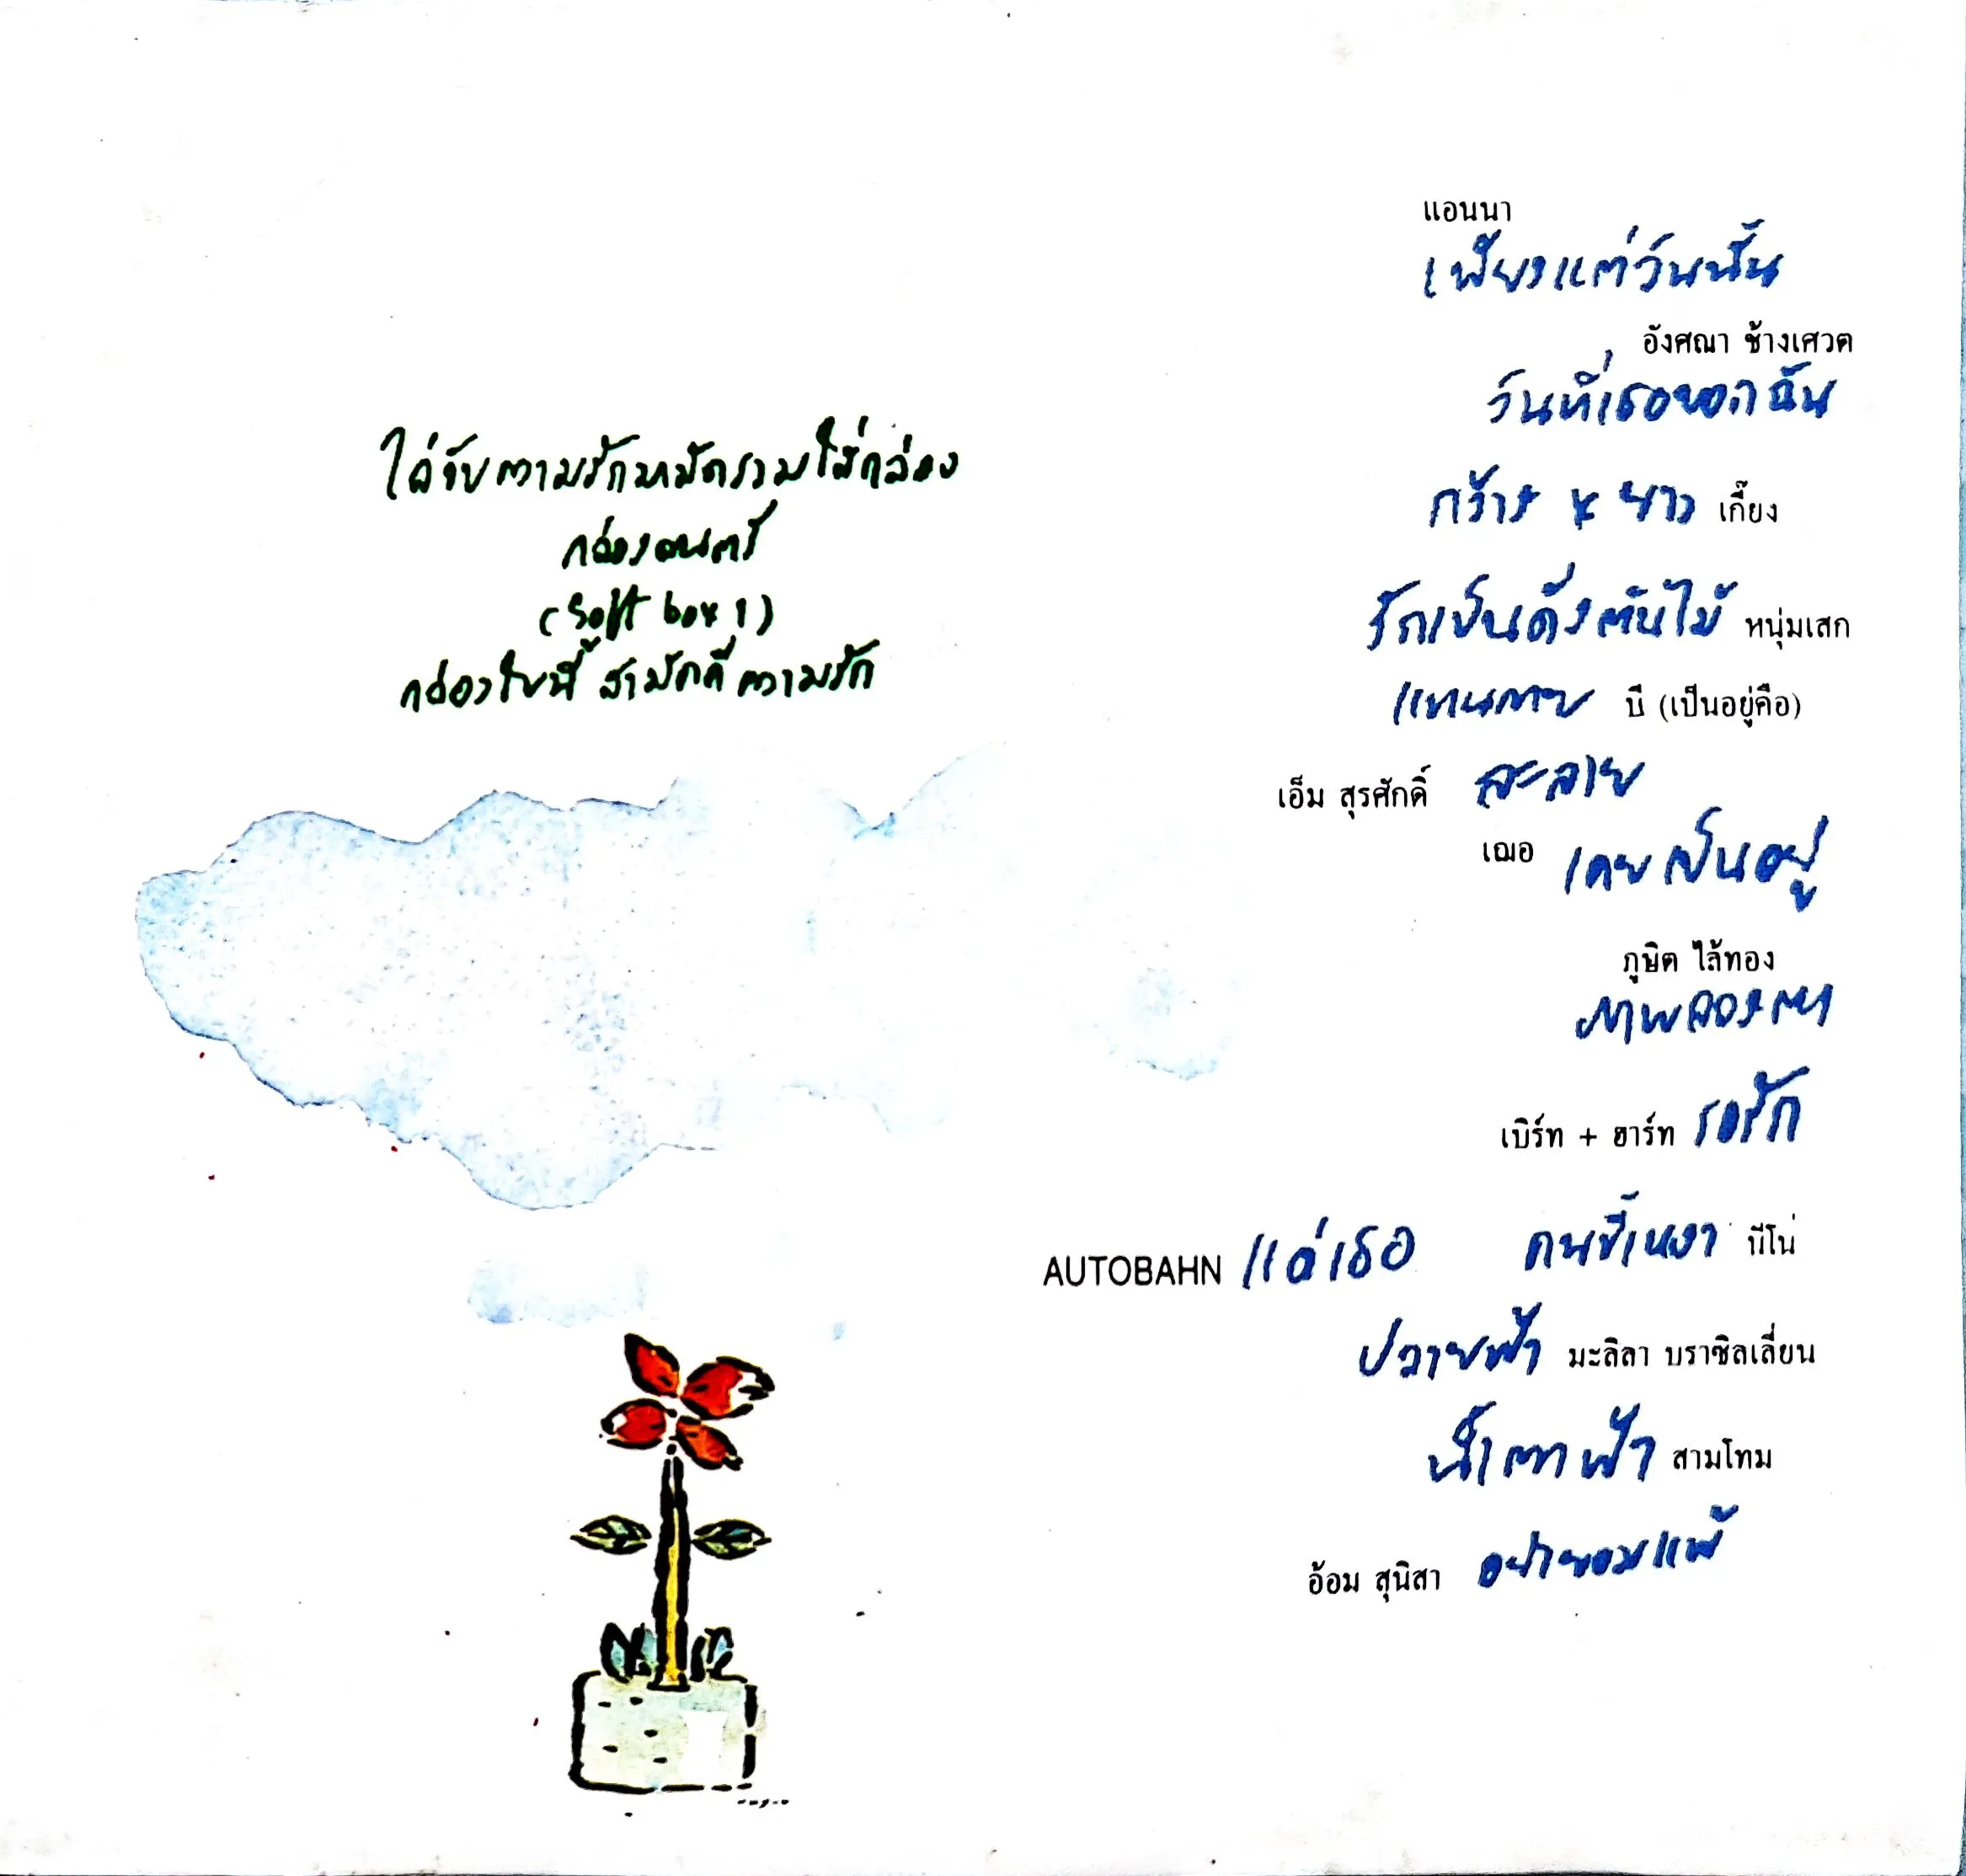 ไล่จับความรักหมัดรวมใส่กล่อง
กล่องดนตรี
(Soft box 1)
กล่องใบนี้ สามัคคีความรัก
แอนนา
เพียงแต่วันนั้น
อังศณา ช้างเศวต
วันที่เธอบอกฉัน
กว้าง x ยาว เกี๊ยง
รักเป็นดั่งต้นไม้ หนุ่มเสก
แทนกาย บี (เป็นอยู่คือ)
เอ็ม สุรศักดิ์ สะลาย
เฌอ เคยเป็นอยู่
ภูษิต ไล้ทอง
ภาพลวงตา
เบิร์ท + ฮาร์ท รอรัก
AUTOBAHN แด่เธอ คนขี้เหงา บีโน่
ปลายฟ้า มะลิลา บราซิลเลี่ยน
น้ำตาฟ้า สามโทน
อ้อม สุนิสา อย่ายอมแพ้